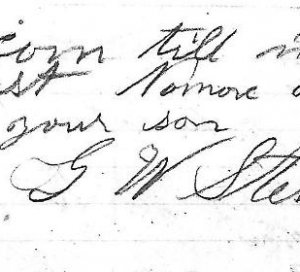 corn till
st Nomore
your son
G W Ste